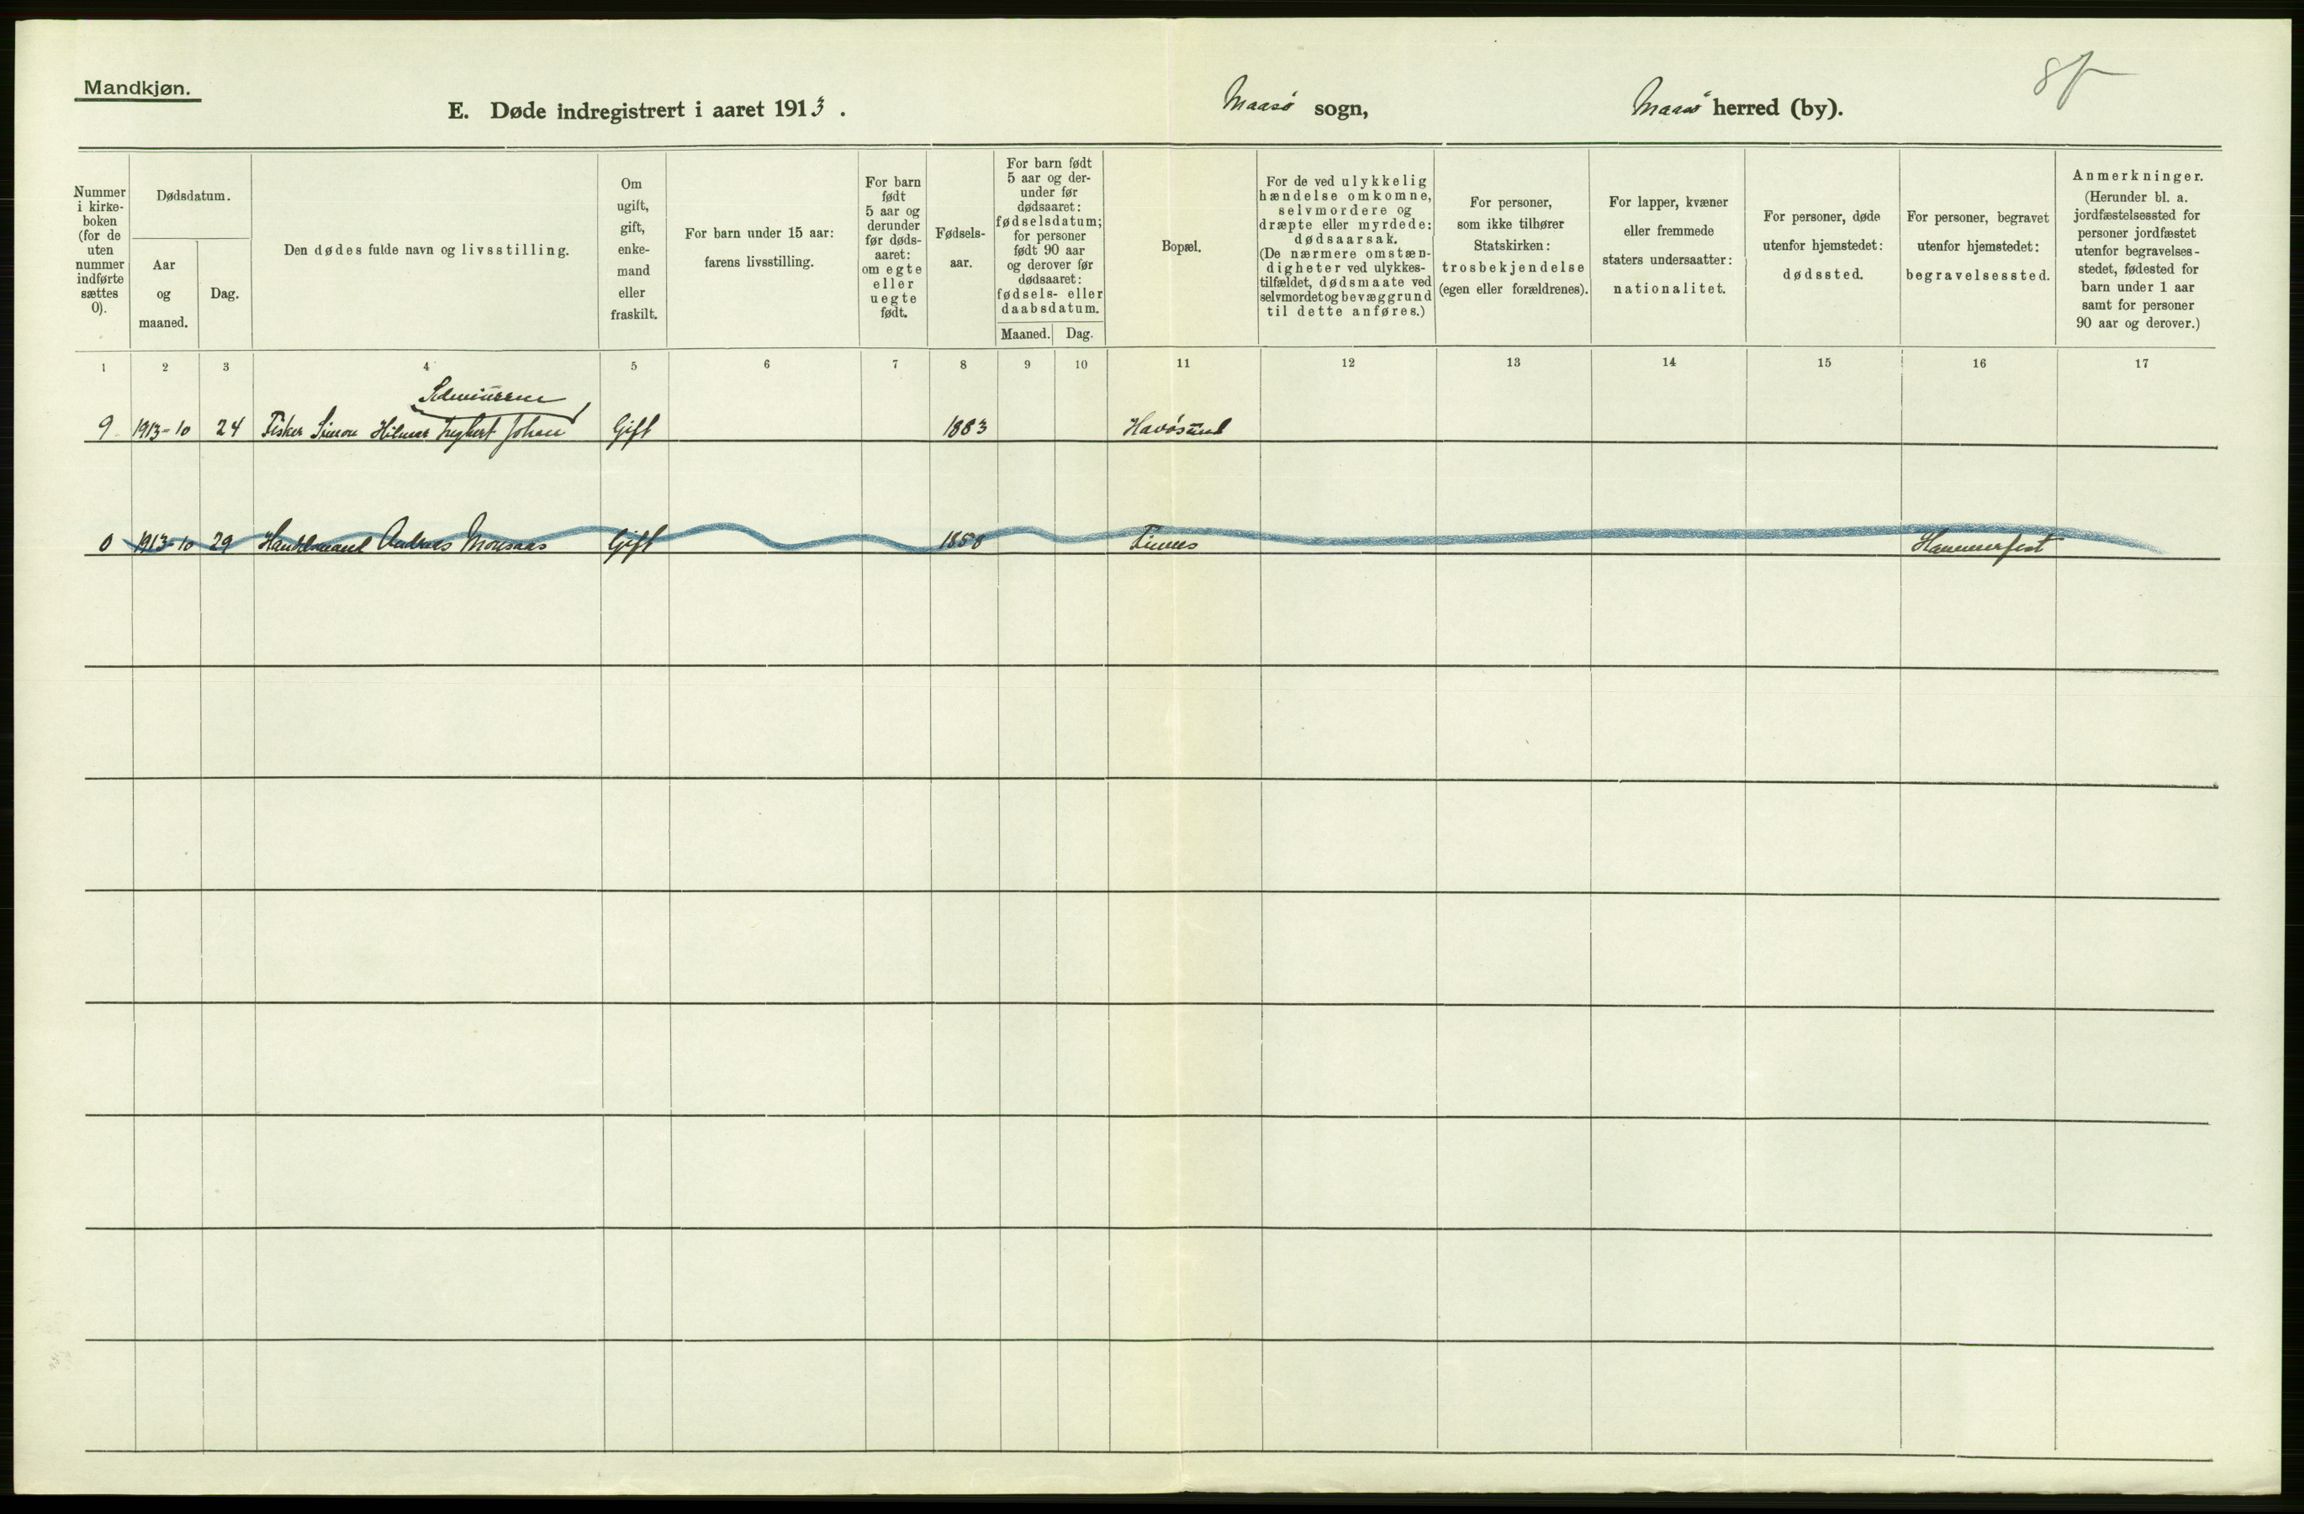 Mandkjøn.
E. Døde indregistrert i aaret 1913.
Maasø sogn,
Maasø herred (by).
Nummer
i kirke-
boken
(for de
uten
nummer
indførte
sættes
0).
Dødsdatum.
Aar
og
maaned.
Dag.
Den dødes fulde navn og livsstilling.
Om
ugift,
gift,
enke-
mand
eller
fraskilt.
For barn under 15 aar:
farens livsstilling.
For barn
født
5 aar og
derunder
før døds-
aaret:
om egte
eller
uegte
født.
Fødsels-
aar.
For barn født
5 aar og der-
under før
dødsaaret:
fødselsdatum;
for personer
født 90 aar
og derover før
dødsaaret:
fødsels- eller
daabsdatum.
Maaned.
Dag.
Bopæl.
For de ved ulykkelig
hændelse omkomne,
selvmordere og
dræpte eller myrdede:
dødsaarsak.
(De nærmere omstæn-
digheter ved ulykkes-
tilfældet, dødsmaate ved
selvmordet og bevæggrund
til dette anføres.)
For personer,
som ikke tilhører
Statskirken:
trosbekjendelse
(egen eller forældrenes).
For lapper, kvæner
eller fremmede
staters undersaatter:
nationalitet.
For personer, døde
utenfor hjemstedet:
dødssted.
For personer, begravet
utenfor hjemstedet:
begravelsessted.
Anmerkninger.
(Herunder bl. a.
jordfæstelsessted for
personer jordfæstet
utenfor begravelses-
stedet, fødested for
barn under 1 aar
samt for personer
90 aar og derover.)
1 2 3 4 5 6 7 8 9 10 11 12 13 14 15 16 17
9. 1913-10 24 Fisker Simon Hilmar Johan Gift 1883 Havøsund
0 1913-10 29 Handelsmand Andreas Gift 1850 Hammerfest